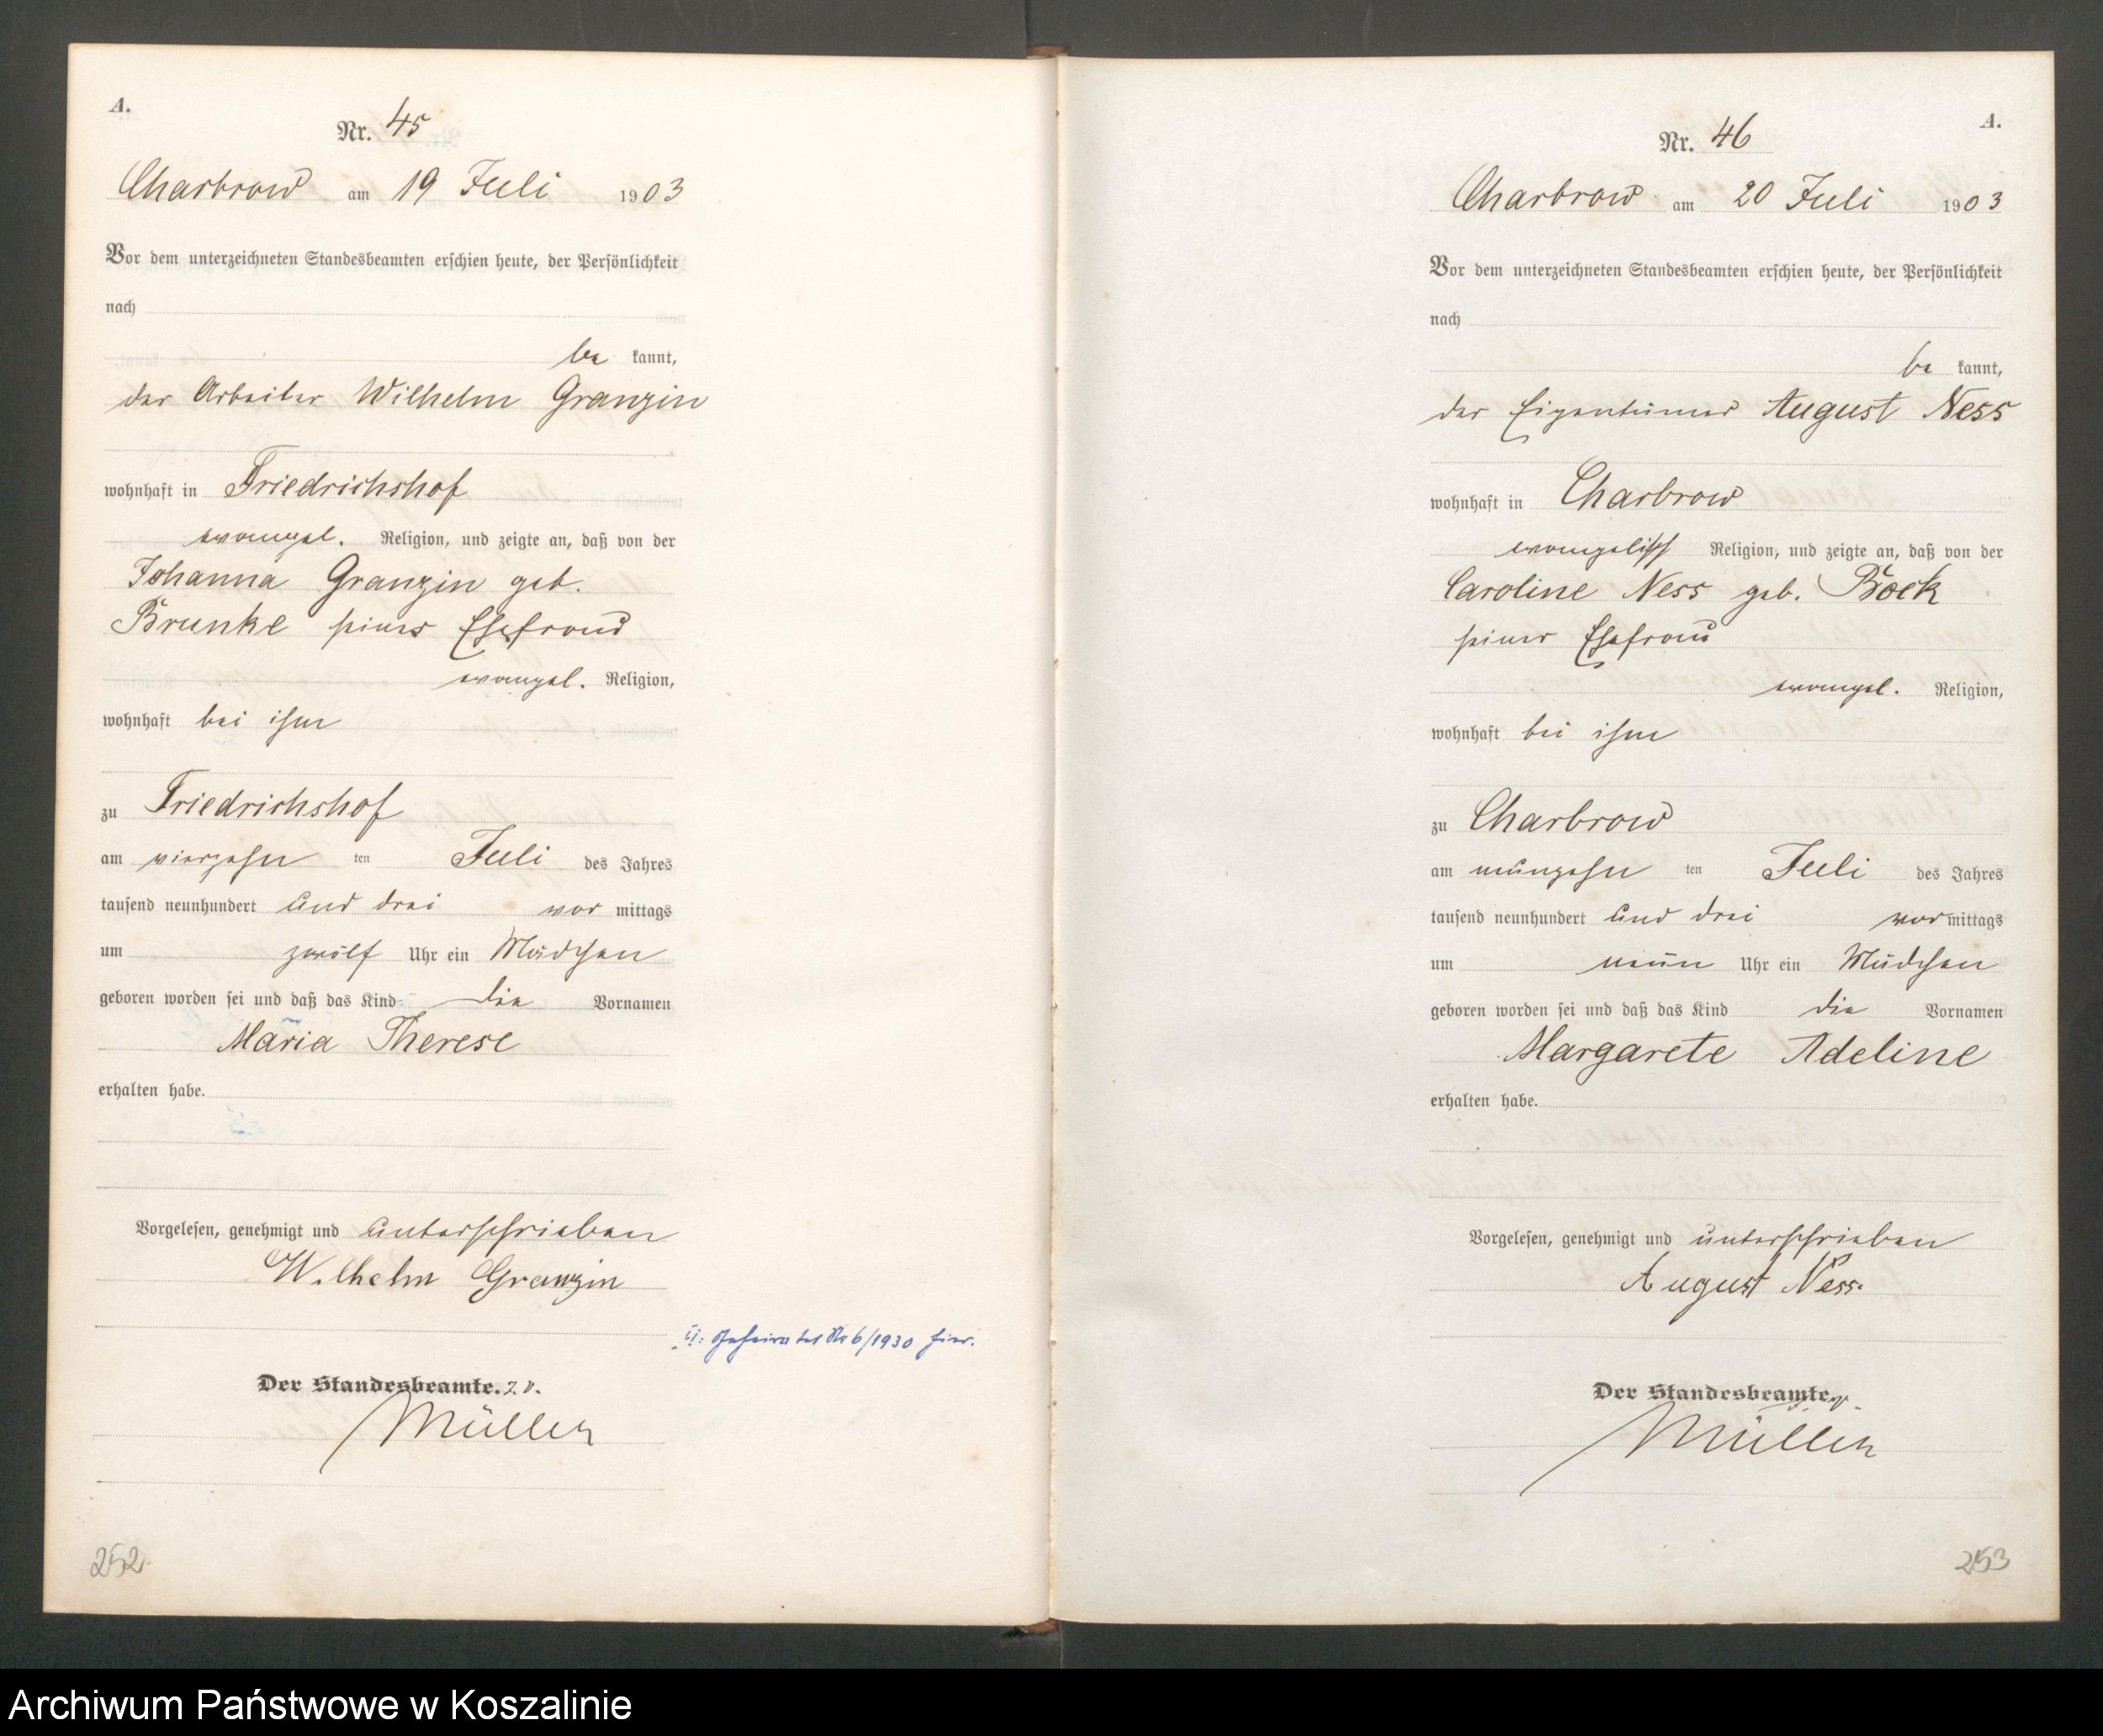 A.
Nr. 45
Charbrow am 19 Juli 1903
Vor dem unterzeichneten Standesbeamten erschien heute, der Persönlichkeit
nach
be kannt,
der Arbeiter Wilhelm Granzin
wohnhaft in Friedrichshof
evangel. Religion, und zeigte an, daß von der
Johanna Granzin geb.
Brunke seiner Ehefrau
evangel. Religion,
wohnhaft bei ihm
zu Friedrichshof
am vierzehn ten Juli des Jahres
tausend neunhundert und drei vor mittags
um zwölf Uhr ein Mädchen
geboren worden sei und daß das Kind die Vornamen
Maria Therese
erhalten habe.
Vorgelesen, genehmigt und unterschrieben
Wilhelm Granzin
geheiratet Nr 6/1930 hier.
Der Standesbeamte. J. V.
Müller
252
A.
Nr. 46
Charbrow am 20 Juli 1903
Vor dem unterzeichneten Standesbeamten erschien heute, der Persönlichkeit
nach
be kannt,
der Eigentümer August Ness
wohnhaft in Charbrow
evangelisch Religion, und zeigte an, daß von der
Caroline Ness geb. Bock
seiner Ehefrau
evangel. Religion,
wohnhaft bei ihm
zu Charbrow
am neunzehn ten Juli des Jahres
tausend neunhundert und drei vor mittags
um neun Uhr ein Mädchen
geboren worden sei und daß das Kind die Vornamen
Margarete Adeline
erhalten habe.
Vorgelesen, genehmigt und unterschrieben
August Ness.
Der Standesbeamte.
Müller
253
Archiwum Państwowe w Koszalinie